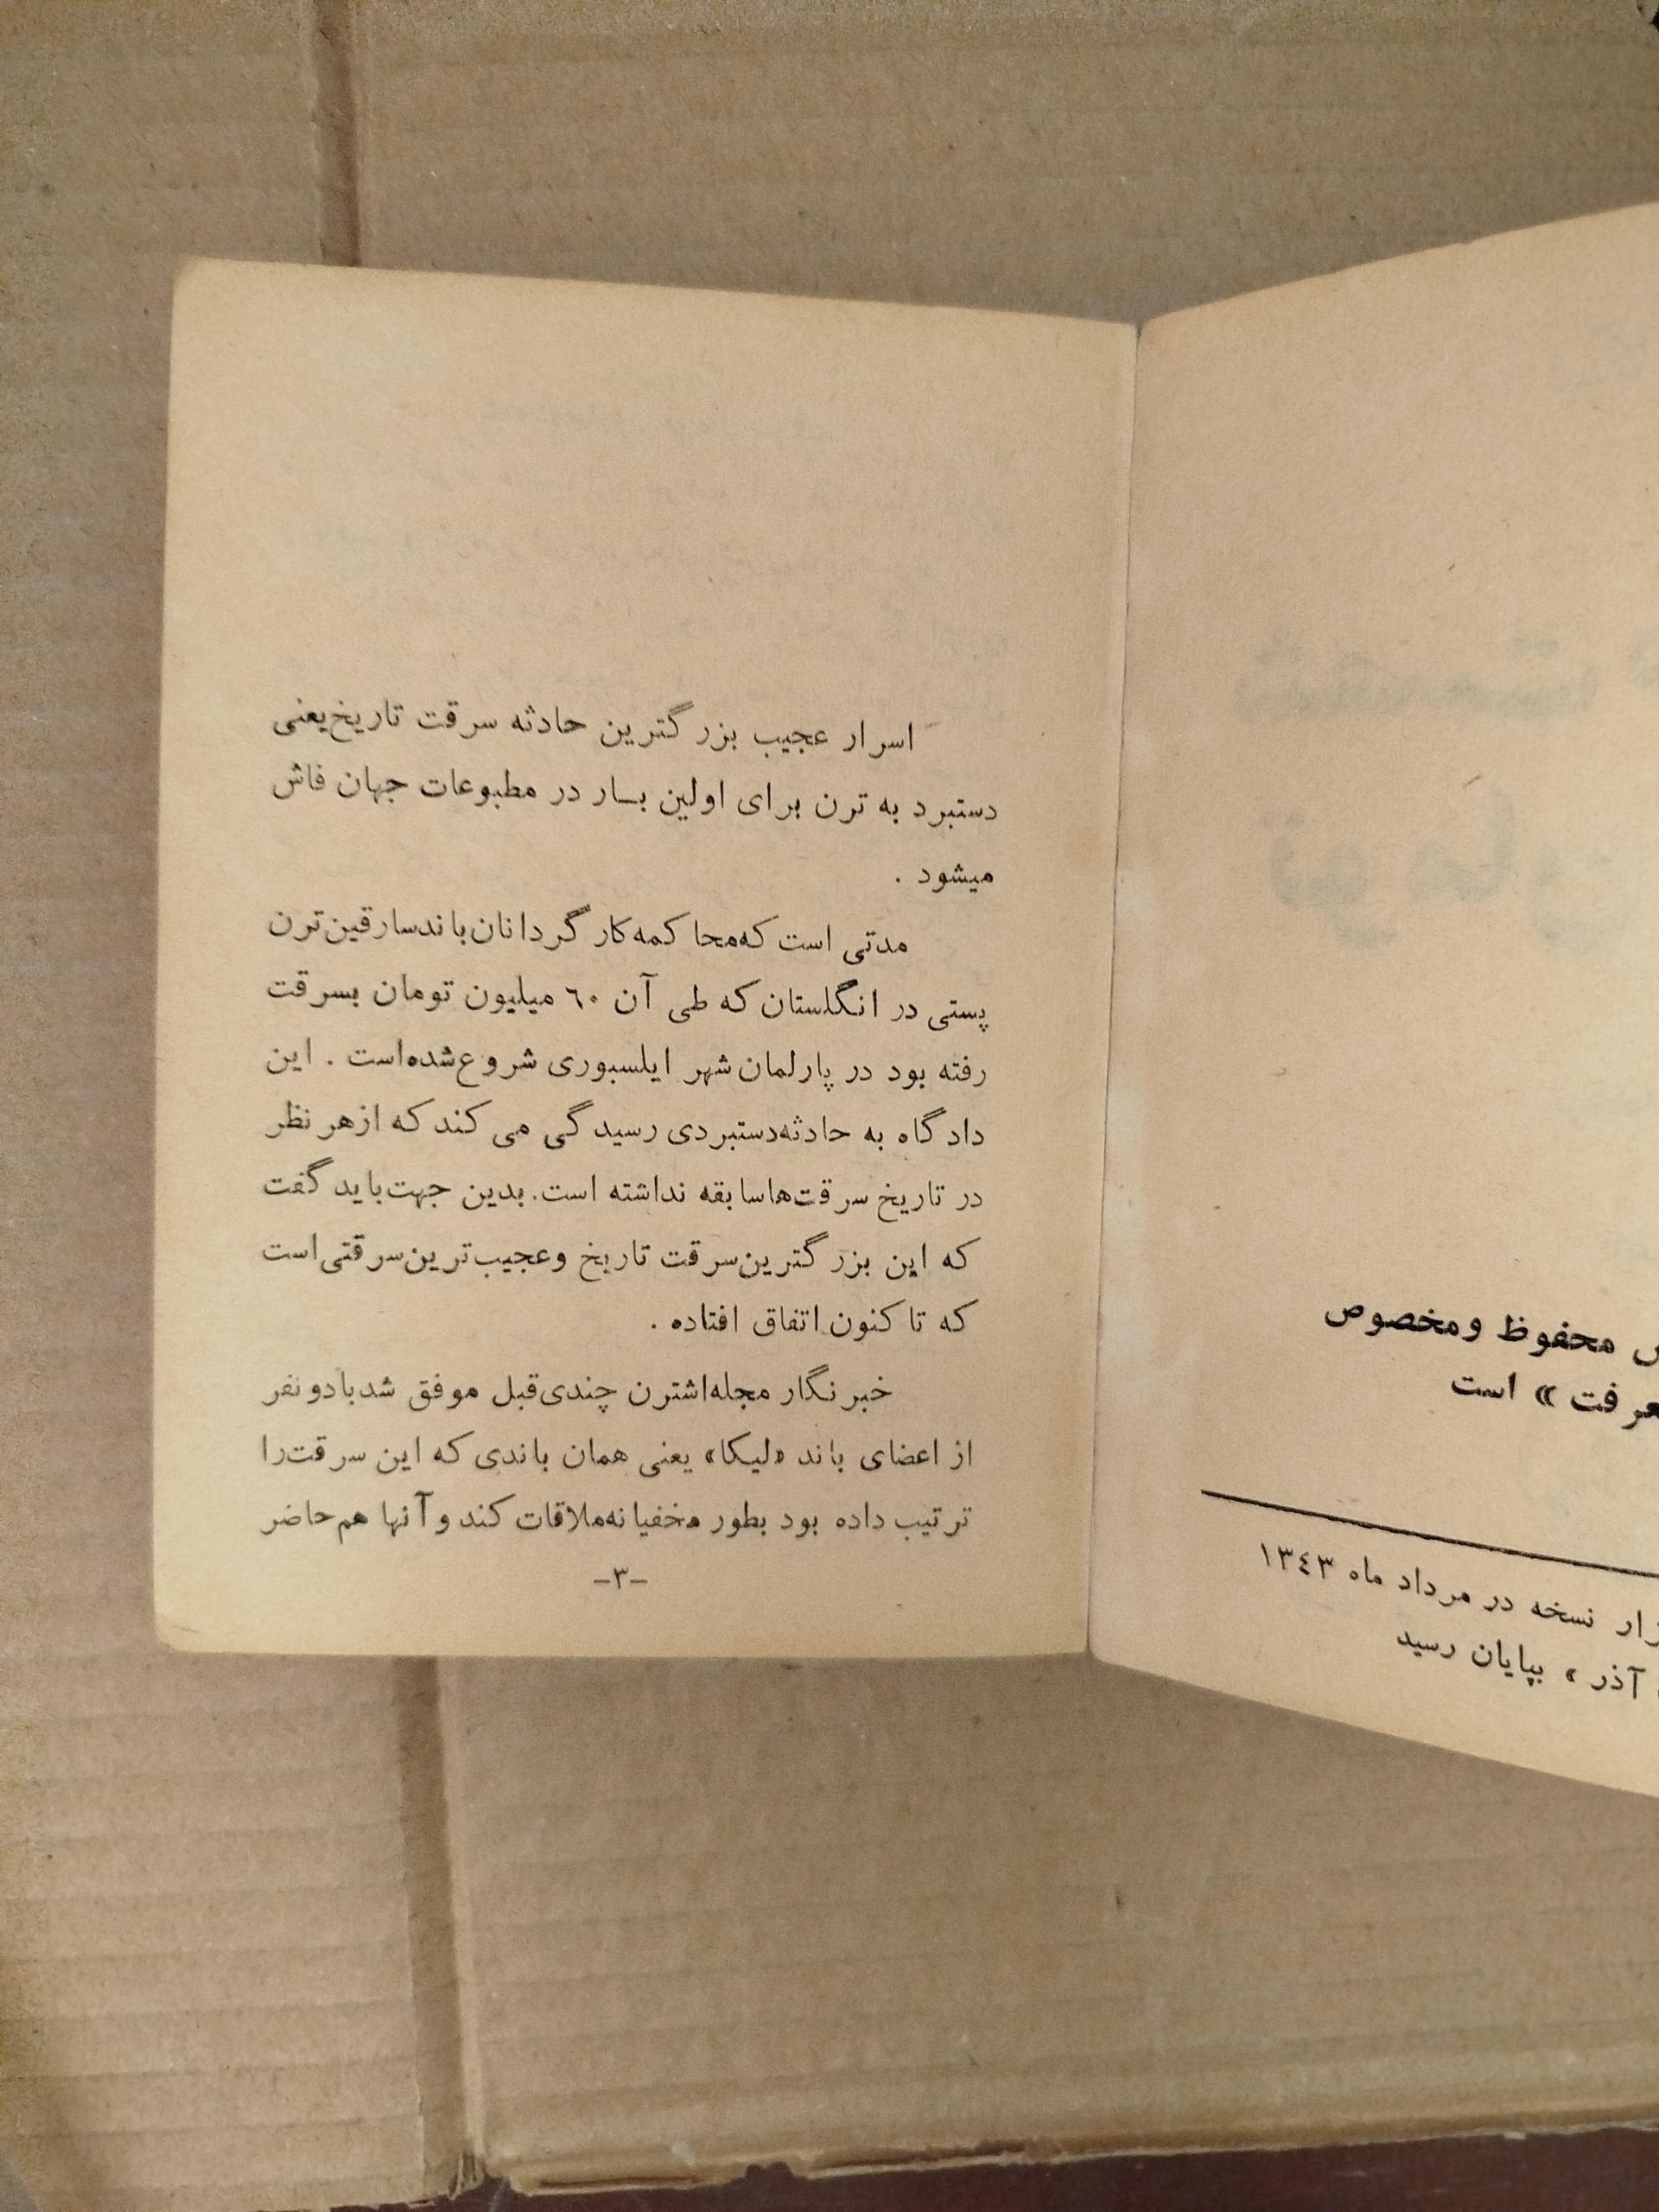 محفوظ ومخصوص
» است
نسخه در مرداد ماه ۱۳٤۳
آذر » بپایان رسید
اسرار عجیب بزرگترین حادثه سرقت تاریخ‌یعنی
دستبرد به ترن برای اولین بـار در مطبوعات جهان فاش
میشود .
مدتی است که‌محاکمه‌کارگردانان‌باندسارقین‌ترن
پستی در انگلستان که طی آن ٦۰ میلیون تومان بسرقت
رفته بود در پارلمان شهر ایلسبوری شروع‌شده‌است . این
دادگاه به حادثه‌دستبردی رسیدگی می کند که ازهر نظر
در تاریخ سرقت‌هاسابقه نداشته است. بدین جهت‌باید گفت
که این بزرگترین‌سرقت تاریخ وعجیب‌ترین‌سرقتی‌است
که تاکنون اتفاق افتاده .
خبرنگار مجله‌اشترن چندی‌قبل موفق شدبادونفر
از اعضای باند «لیکا» یعنی همان باندی که این سرقت‌را
ترتیب داده بود بطور مخفیانه‌ملاقات کند وآنها هم‌حاضر
–۳–